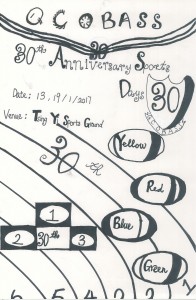 QCOBASS
30th Anniversary Sports
30
Days
30
QCOBASS
Date: 13,19/1/2017
Venue: Tsing Yi Sports Ground
30
Yellow
Red
Blue
Green
1
2 30th 3
6 5 4 3 2